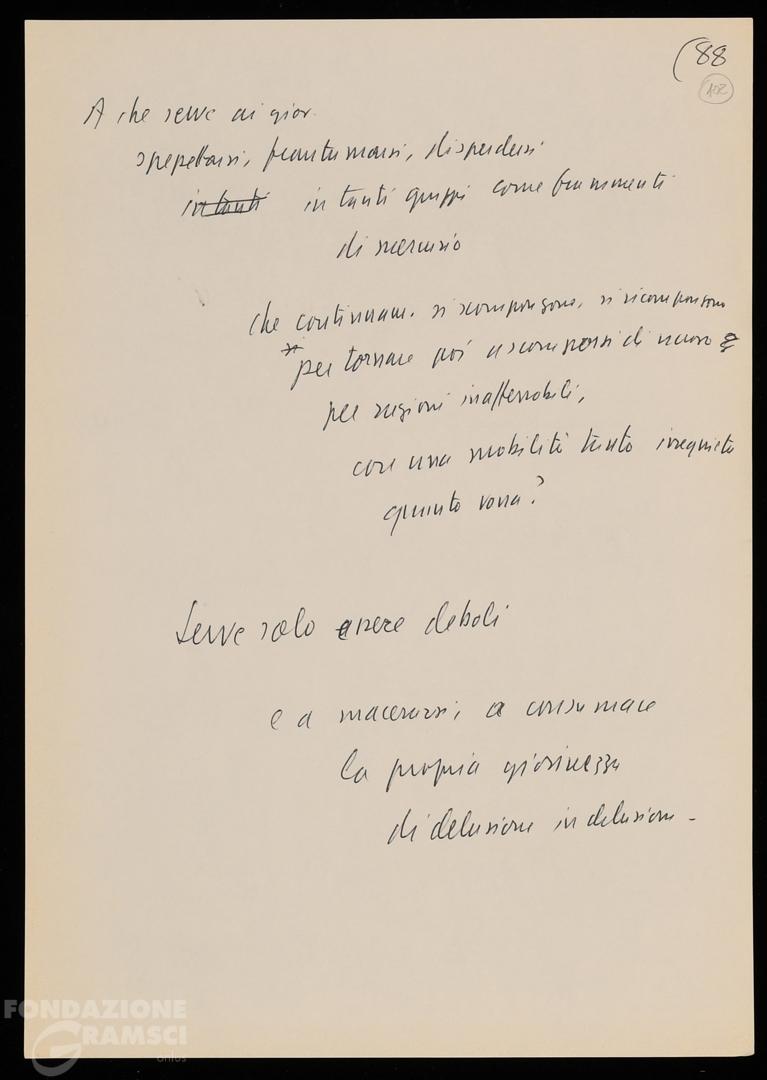 (88
102
A che serve ai giov.
spezzettarsi, frantumarsi, disperdersi
in tanti in tanti gruppi come frammenti
di mercurio
che continuam. si scompongono, si ricompongono
per tornare poi a scomporsi di nuovo
per ragioni inafferrabili,
con una mobilità tanto irrequieta
quanto vana?
Serve solo a essere deboli
e a macerarsi, a consumare
la propria giovinezza
di delusione in delusione -
FONDAZIONE
GRAMSCI
onlus